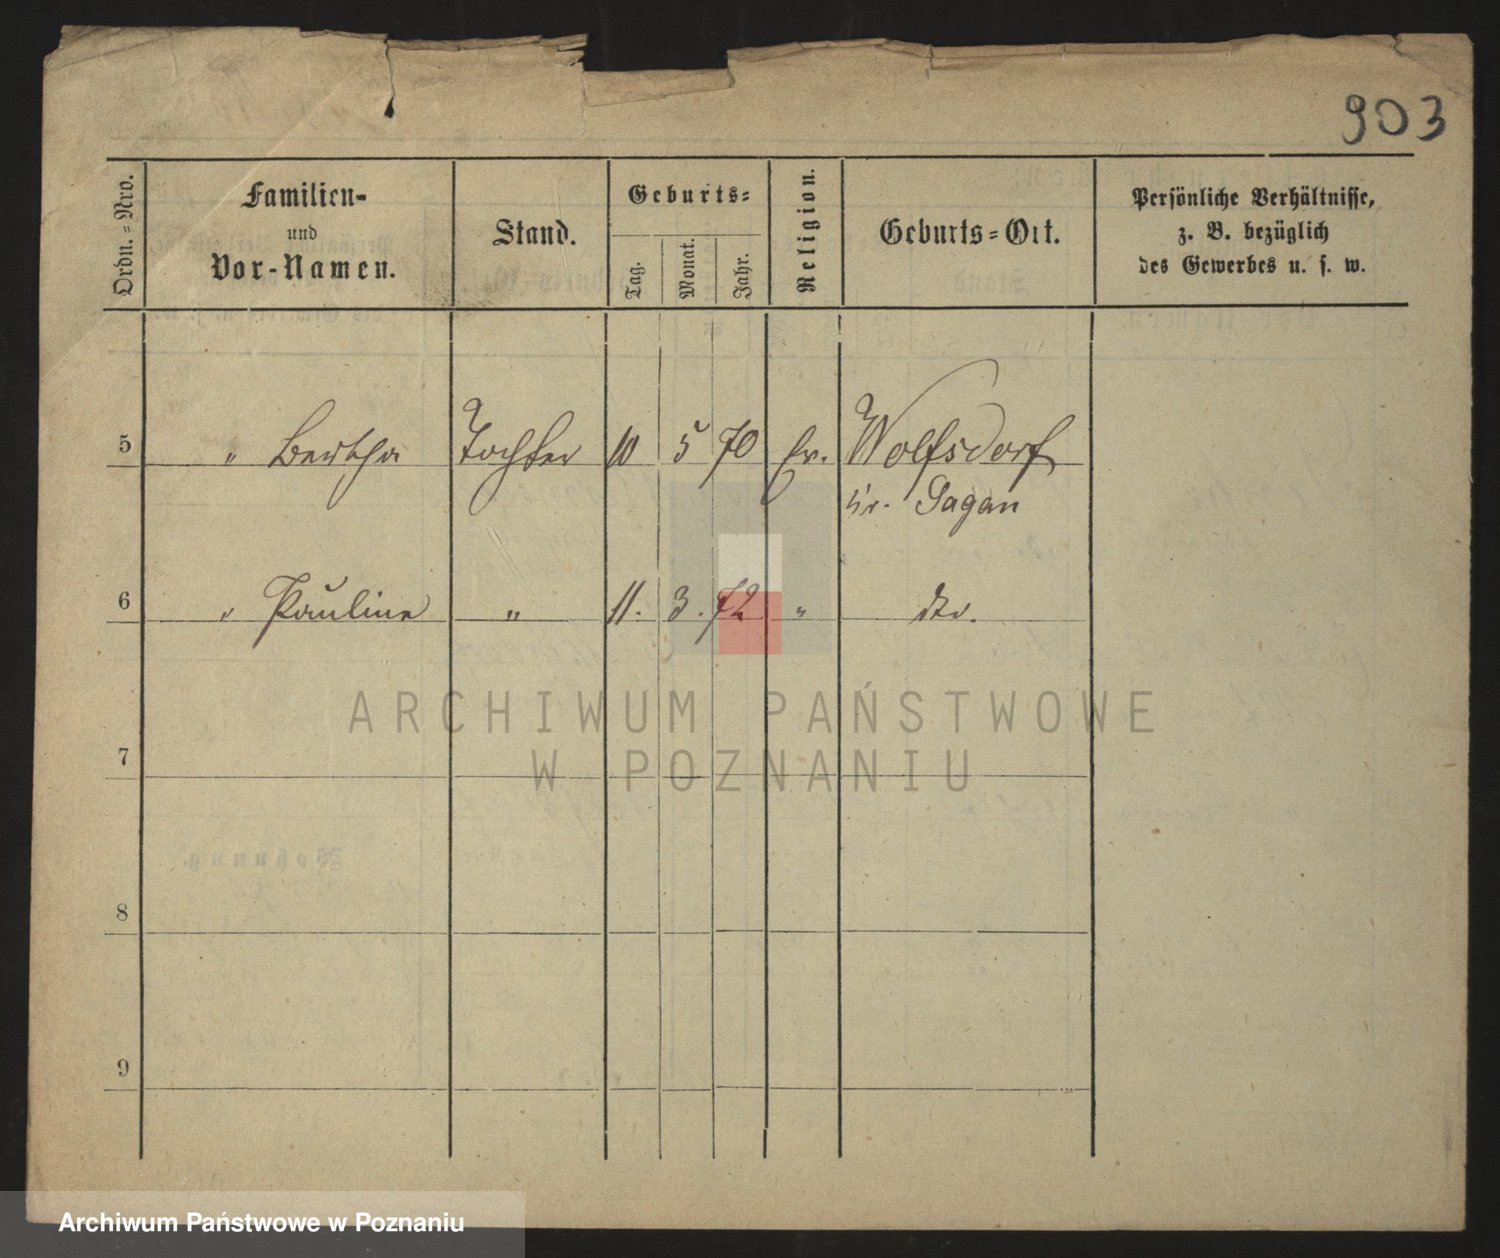 903
Ordn.=Nro.
Familien-
und
Vor-Namen.
Stand.
Geburts=
Tag.
Monat.
Jahr.
Religion.
Geburts=Ort.
Persönliche Verhältnisse,
z. B. bezüglich
des Gewerbes u. s. w.
5 " Bertha Tochter 10 5 70 Ev. Wolfsdorf
Kr. Sagan
6 " Pauline " 11. 3. 72 " dto.
7
8
9
ARCHIWUM PAŃSTWOWE
W POZNANIU
Archiwum Państwowe w Poznaniu